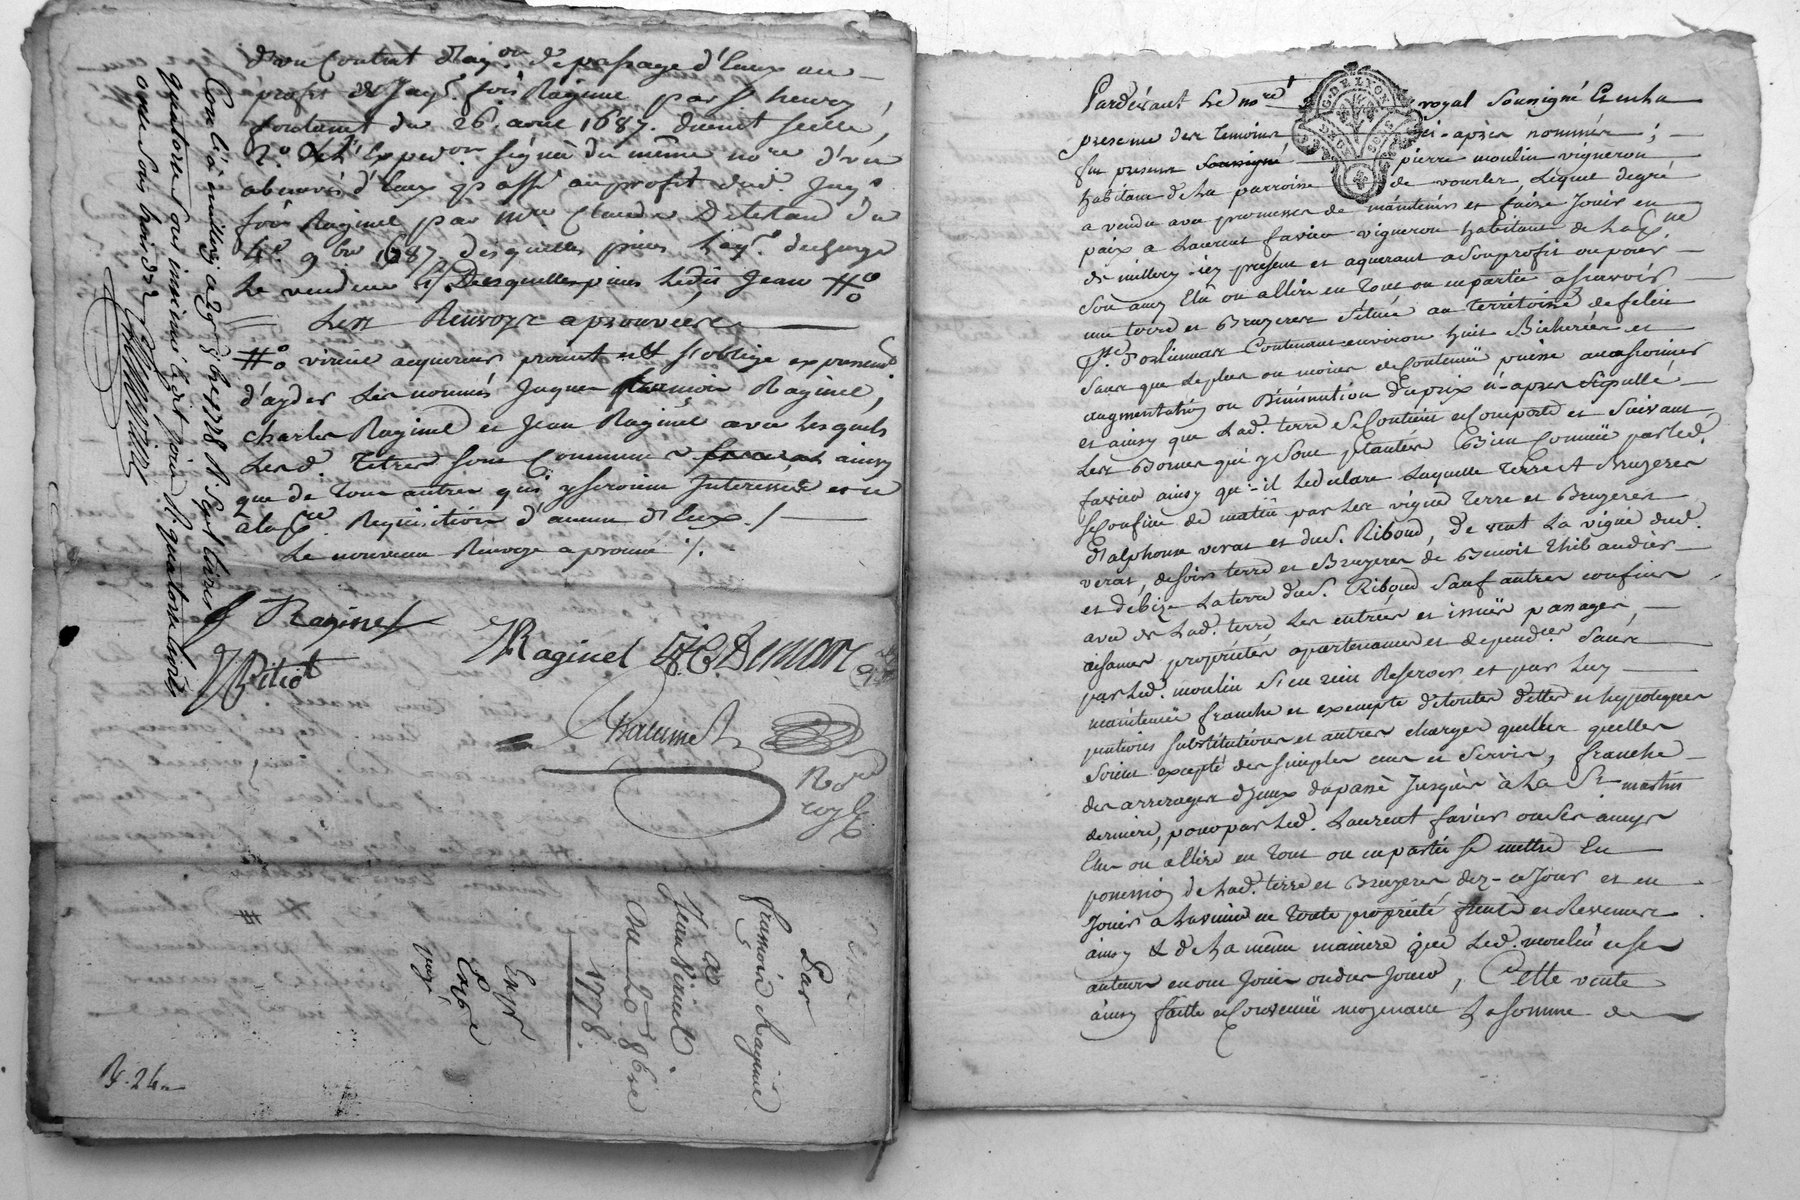 d'vn Contrat d'aq.on de passage d'Eaux au
profit de Jaq.s fois Raginel par s.r henry
fontanet du 26. avril 1687. duement scellé,
2.o Et L'Exped.on signée du même no.re d'vn
abenevis d'Eaux passé au profit dud. Jaq.s
fois Raginel par M.re Claude
4.e 9.bre 1687. desquelles pieces Laq.r decharge
Le vendeur Desquelles pieces Ledit Jean #
Les Renvoys aprouvées
# vincent acquereur promet et s'oblige expressem.t
d'ayder Les nommés Jaques françois Raginel,
Charles Raginel et Jean Raginel avec Lesquels
Lesd. Titres sont Communs ainsy
que de tous autres qui y seroient Interessés et ce
a La p.re Requisition d'aucun d'Eux ./.
Le nouveau Renvoye aprouvé ./.
Raginel
Raginel Demon
Chalumet
No.re
royl
Controllé à millery a 29. 8bre 1778 R. sept livres
quatorze sous insinué ledit jour R. quatorze livres
onze sous trois d.
Par
françois Raginel
à
Jean Vincent.
Du 20. 8bre
1778.
Exp.r
Exp.é
payé
#
Pardevant Le no.re royal soussigné Et en la
presence des temoins ci-après nommés ;
fut present soussigné pierre moulin vigneron
habitant de La parroisse de vourles, Lequel degré
a vendu avec promesses de maintenir et faire Jouir en
paix a Laurent favier vigneron habitant de La p.sse
de millery icy present et aquerant a son profit ou pour
son amy Elû ou a Elire en tout ou en partie a scavoir
une terre et Bruyeres située au territoire de
Contenant environ huit Bicherées et
sans que Le plus ou moins de Contenue puisse occasionner
augmentation ou diminution du prix ci-apres stipullé
et ainsy que Lad. terre se Contient et Comporte et suivant
Les Bornes qui y sont plantées Bien Connuë par led.
favier ainsy qu'-il Le declare Laquelle terre et Bruyeres
se Confine de matin par Les vigne terre et Bruyeres
d'alphonse veras et du s.r Riboud, de vent La vigne dud.
veras, de soir terre et Bruyeres de Benoit Thibaudier
et de bize La terre du s.r Riboud sauf autres confins
avec de Lad. terre Les entrées et issuës passages,
aisances proprietés apartenances et dependces sans
par Led. moulin s'en rien Reserver et par luy
maintenuë franche et exempte de toutes dettes et hypoteques
pentions substitutions et autres charges quelles quelles
soient excepté des simples cens et servis, franche
des arrerages d'yceux du passé Jusques à La S.t martin
derniere, pour par Led. Laurent favier ou ses amys
Elus ou a Elire en tout ou en partie se mettre En
possession de Lad. terre et Bruyeres dez-ce Jour et en
Jouir a L'avenir en toute proprieté fruits et Revenus
ainsy & de La même maniere que Led. moulin et ses
auteurs en ont Jouis ou dus Jouir, Cette vente
ainsy faitte et Convenuë moyenant La somme de
G. DE LYON